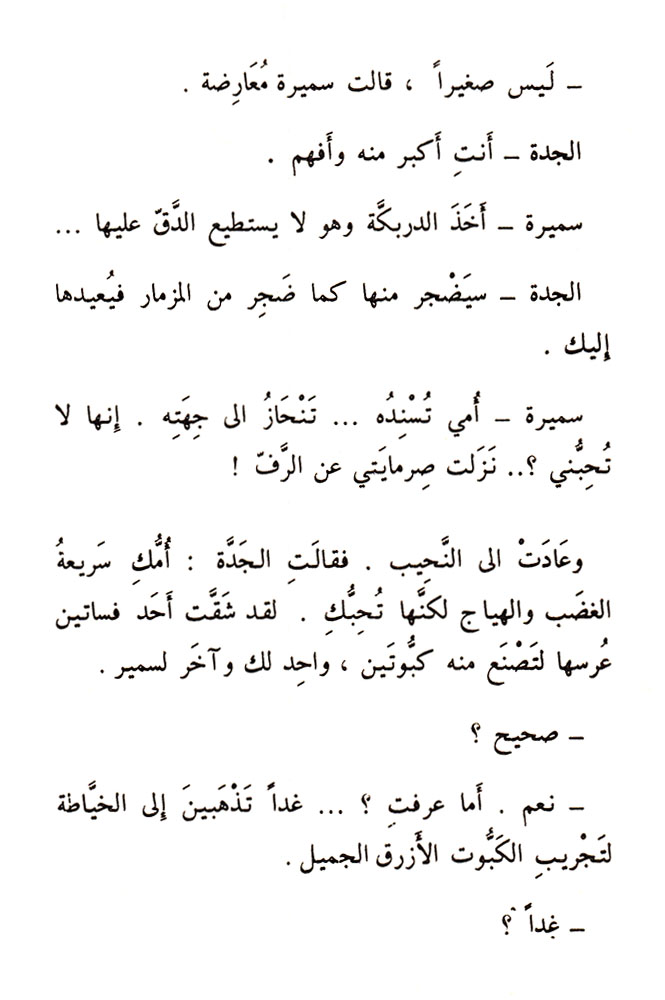 – لَيس صغيراً ، قالت سميرة مُعَارِضة .
الجدة – أَنتِ أَكبر منه وأَفهم .
سميرة – أَخَذَ الدربكَّة وهو لا يستطيع الدَّقّ عليها ...
الجدة – سيَضْجر منها كما ضَجِر من المزمار فيُعيدها
إِليك .
سميرة – أُمي تُسْنِدُه ... تَنْحَازُ الى جِهَتِه . إِنها لا
تُحِبُّني ؟.. نَزَلت صِرمايَتي عن الرَّفّ !
وعَادَتْ الى النَّحِيب . فقالَتِ الجَدَّة : أُمُّكِ سَريعةُ
الغضَب والهياج لكنَّها تُحِبُّكِ . لقد شَقَّت أَحَد فساتين
عُرسها لتَصْنَع منه كبُّوتَين ، واحِد لك وآخَر لسمير .
– صحيح ؟
– نعم . أَما عرفتِ ؟ ... غداً تَذْهَبينَ إِلى الخيَّاطة
لتَجْريبِ الكَبُّوت الأَزرق الجميل .
– غداً ؟